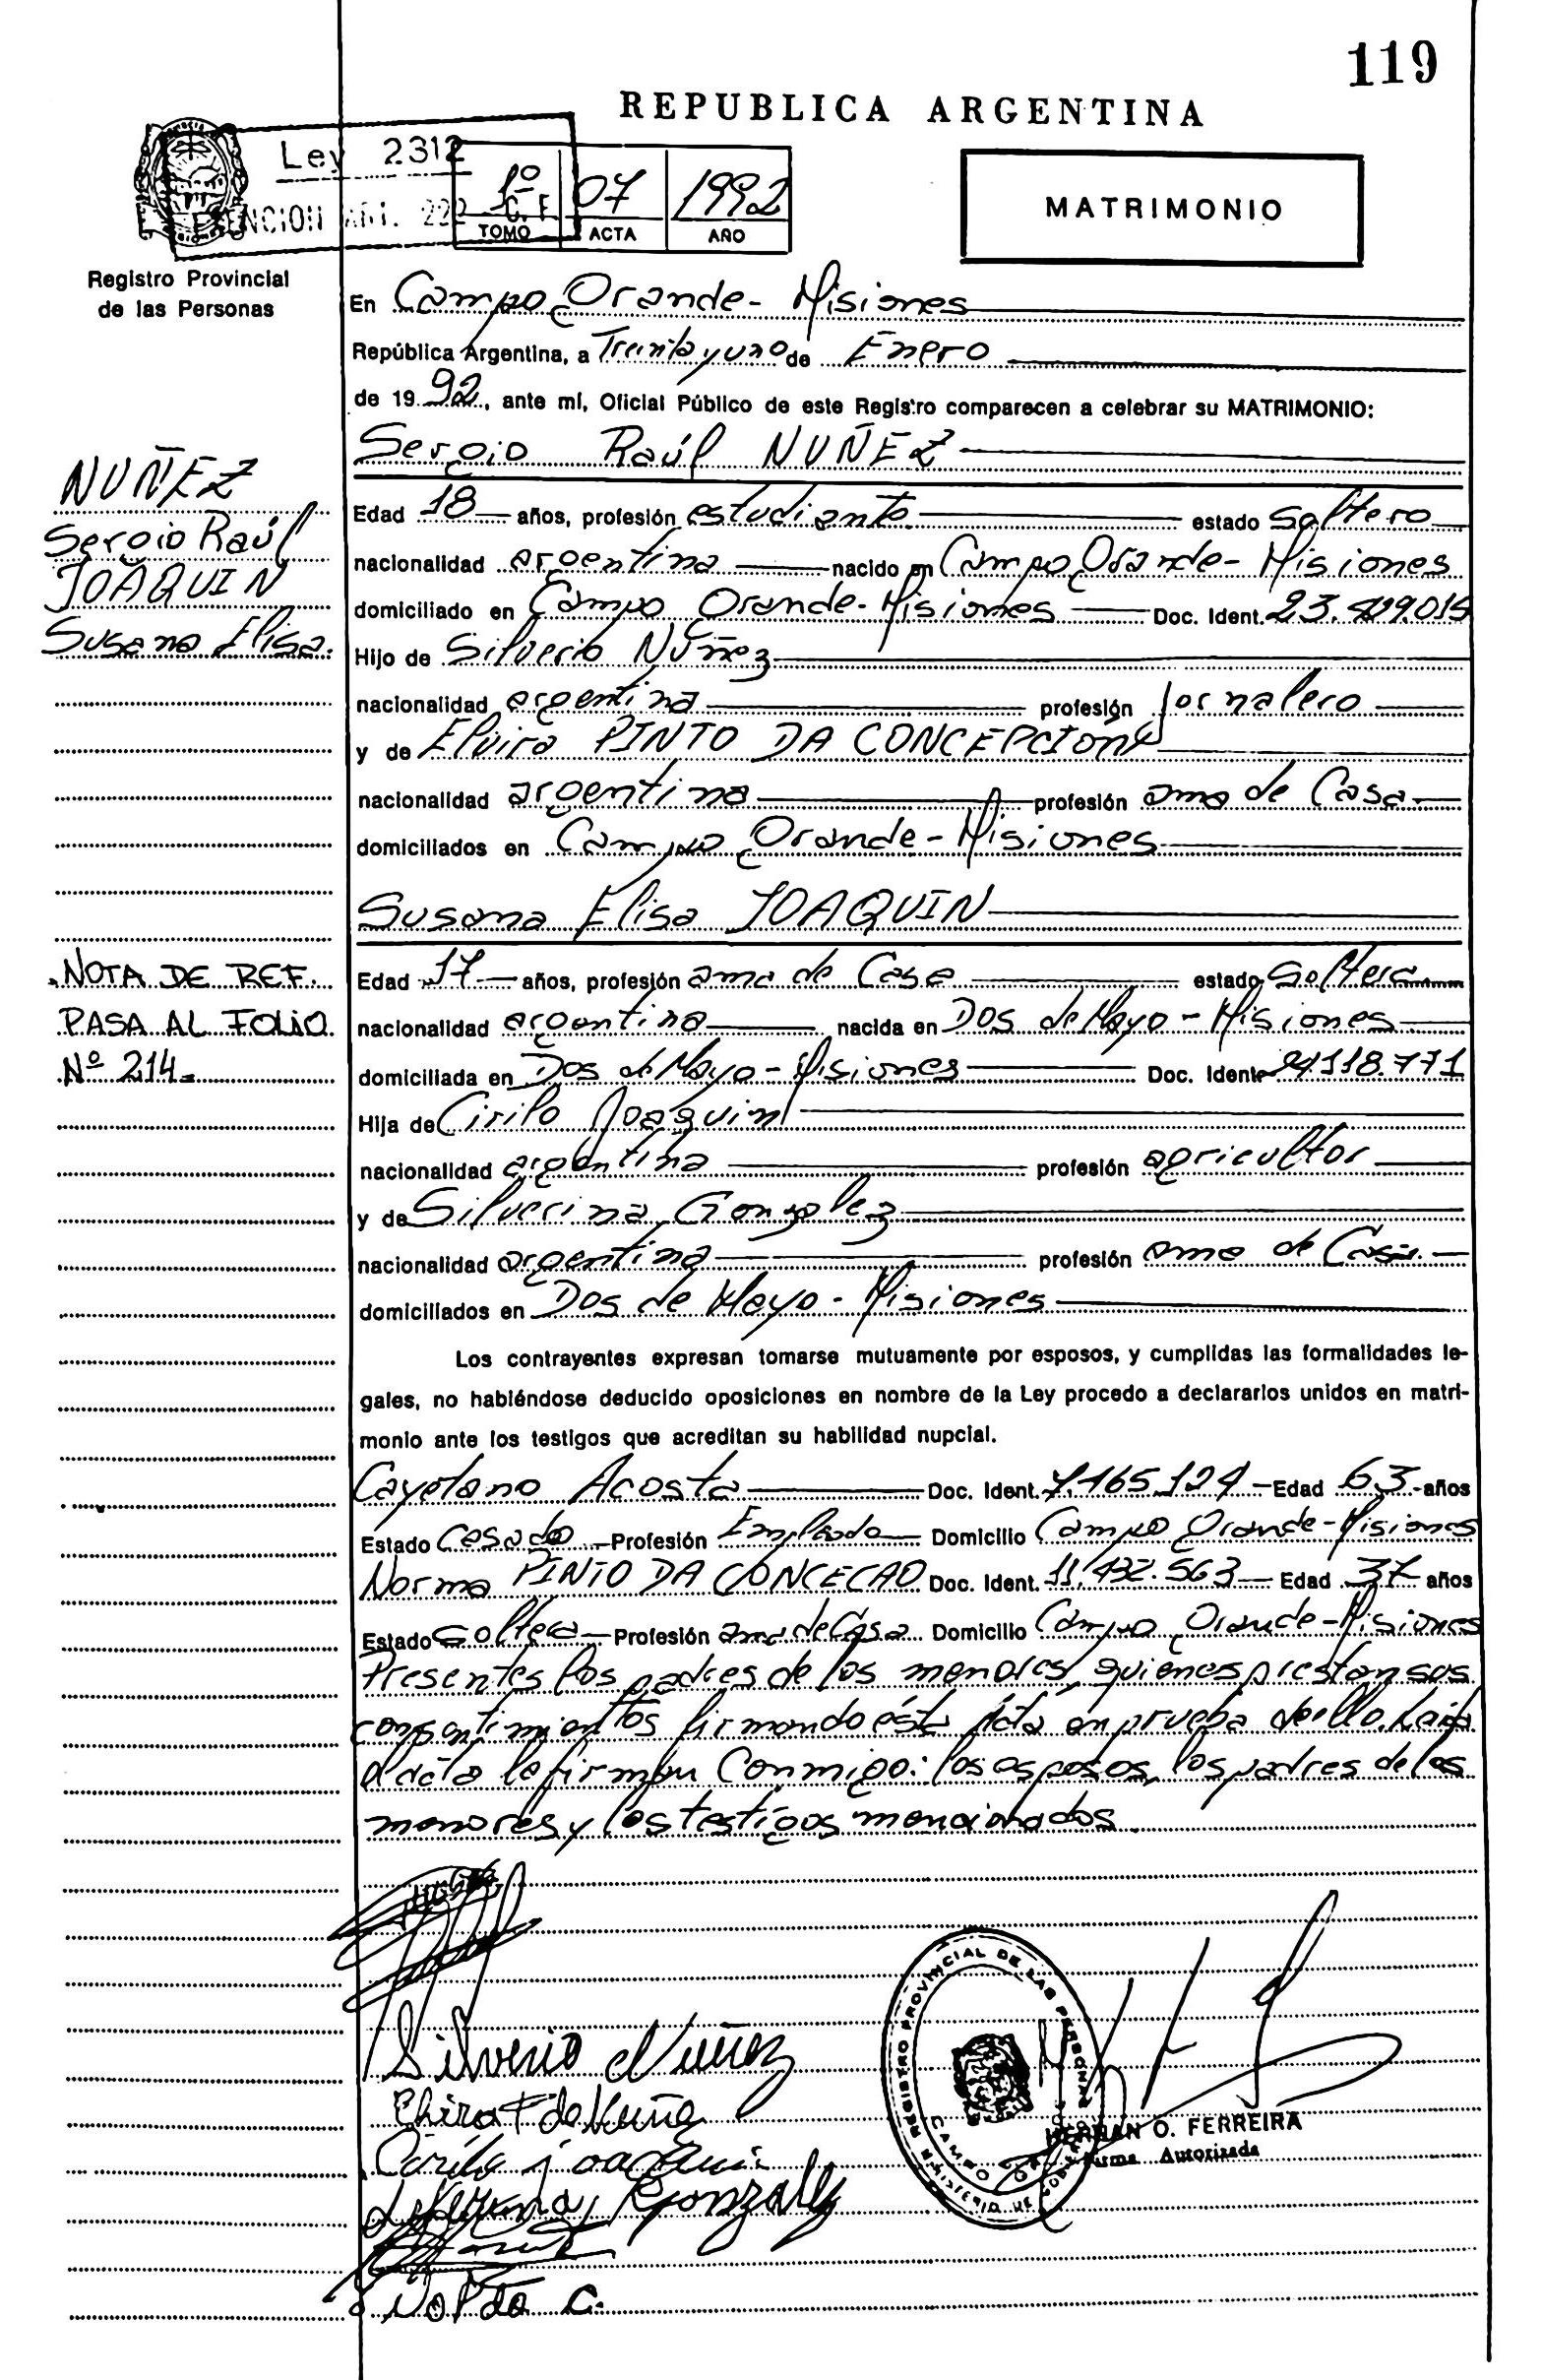 119
REPUBLICA ARGENTINA
Ley 2312
1º 07 1992
TOMO ACTA AÑO
MATRIMONIO
Registro Provincial
de las Personas
En Campo Grande - Misiones
República Argentina, a Treinta y uno de Enero
de 19 92, ante mí, Oficial Público de este Registro comparecen a celebrar su MATRIMONIO:
Sergio Raúl NUÑEZ
NUÑEZ
Sergio Raúl
JOAQUIN
Susana Elisa.
Edad 18 años, profesión estudiante estado Soltero
nacionalidad argentina nacido en Campo Grande - Misiones
domiciliado en Campo Grande - Misiones Doc. Ident.
Hijo de Silverio Núñez
nacionalidad argentina profesión Jornalero
y de Elvira PINTO DA CONCEPCIÓN
nacionalidad argentina profesión ama de Casa
domiciliados en Campo Grande - Misiones
Susana Elisa JOAQUIN
NOTA DE REF.
PASA AL FOLIO
Nº 214.
Edad 17 años, profesión ama de Casa estado Soltera
nacionalidad argentina nacida en Dos de Mayo - Misiones
domiciliada en Dos de Mayo - Misiones Doc. Ident. 24.118.771
Hija de Cirilo Joaquin
nacionalidad argentina profesión agricultor
y de Silverina Gonzalez
nacionalidad argentina profesión ama de Casa
domiciliados en Dos de Mayo - Misiones
Los contrayentes expresan tomarse mutuamente por esposos, y cumplidas las formalidades le-
gales, no habiéndose deducido oposiciones en nombre de la Ley procedo a declararlos unidos en matri-
monio ante los testigos que acreditan su habilidad nupcial.
Cayetano Acosta Doc. Ident. Edad 63 años
Estado Casado Profesión Empleado Domicilio Campo Grande - Misiones
Norma PINTO DA CONCECAO Doc. Ident. 11.432.563 Edad 37 años
Estado Soltera Profesión ama de Casa Domicilio Campo Grande - Misiones
Presentes los padres de los menores, quienes prestan sus
consentimientos firmando ésta Acta en prueba de ello. Leída
el acta la firman Conmigo: los esposos, los padres de los
menores y los testigos mencionados.
Silverio Nuñez
Elvira P de Nuñez
Cirilo Joaquin
Silverina Gonzalez
REGISTRO PROVINCIAL DE LAS PERSONAS
MINISTERIO DE GOBIERNO
HERNAN O. FERREIRA
Firma Autorizada